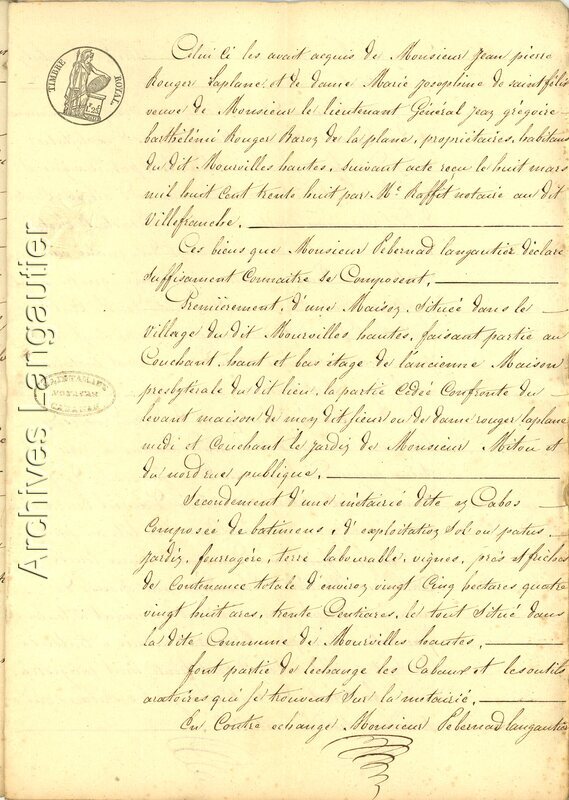 TIMBRE ROYAL
Celui ci les avait acquis de Monsieur Jean pierre
Rouger Laplane, et de dame Marie Josephine de saint félix
veuve de Monsieur le lieutenant Général Jean grégoire
barthélémi Rouger Baron de la plane, propriétaires, habitans
du dit Mourvilles hautes, suivant acte reçu le huit mars
mil huit cent trente huit par Me. Raffit notaire au dit
Villefranche.
Ces biens que Monsieur Pebernad langautier déclare
suffisament connaitre se composent,
Premièrement, d'une Maison, située dans le
village du dit Mourvilles hautes, faisant partie au
Couchant, haut et bas étage de l'ancienne Maison
presbytérale du dit lieu, la partie cédée confronte du
levant maison de mon dit sieur ou de dame rouger laplane
midi et couchant le jardin de Monsieur Mitou et
du nord rue publique.
Secondement d'une métairié dite en Cabos
composée de batimens, d'exploitation sol ou patus
jardin, fourragère, terre labourable, vignes, prés et friches
de contenance totale d'environ vingt cinq hectares quatre
vingt huit ares, trente centiares, le tout situé dans
la dite Commune de Mourvilles hautes.
font partie de lechange les Cabaux et les outils
aratoires qui se trouvent sur la métairié.
En Contre echange Monsieur Pebernad langautier
Archives Langautier